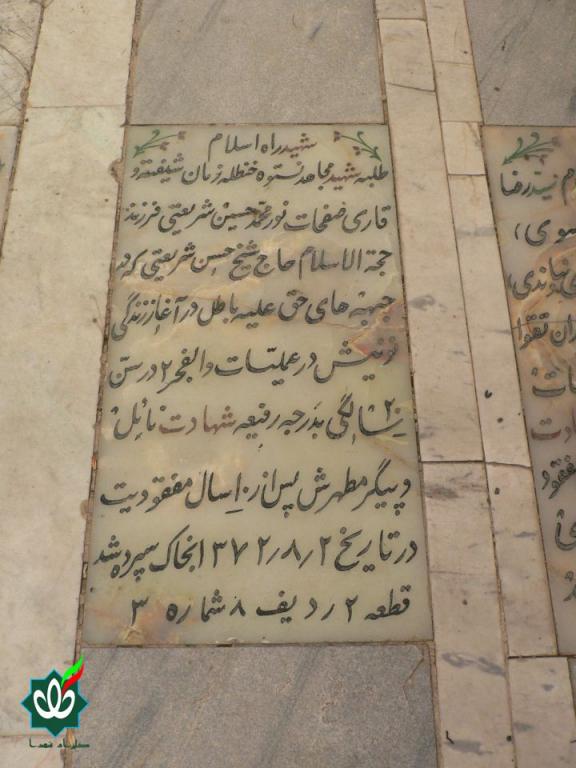 شهید راه اسلام
طلبه شهید مجاهد نستوه حنظله زمان شیفته و
قاری صفحات نور محمد حسین شریعتی فرزند
حجة الاسلام حاج شیخ حسن شریعتی که در
جبهه های حق علیه باطل در آغاز زندگی
نوینش در عملیات والفجر ۲ در سن
۲۰ سالگی بدرجه رفیعه شهادت نائل
و پیگر مطهرش پس از ۱۰ سال مفقودیت
در تاریخ ۱۳۷۲٫۸٫۲ بخاک سپرده شد
قطعه ۲ ردیف ۸ شماره ۳
سید رضا
سوی)
تقوا